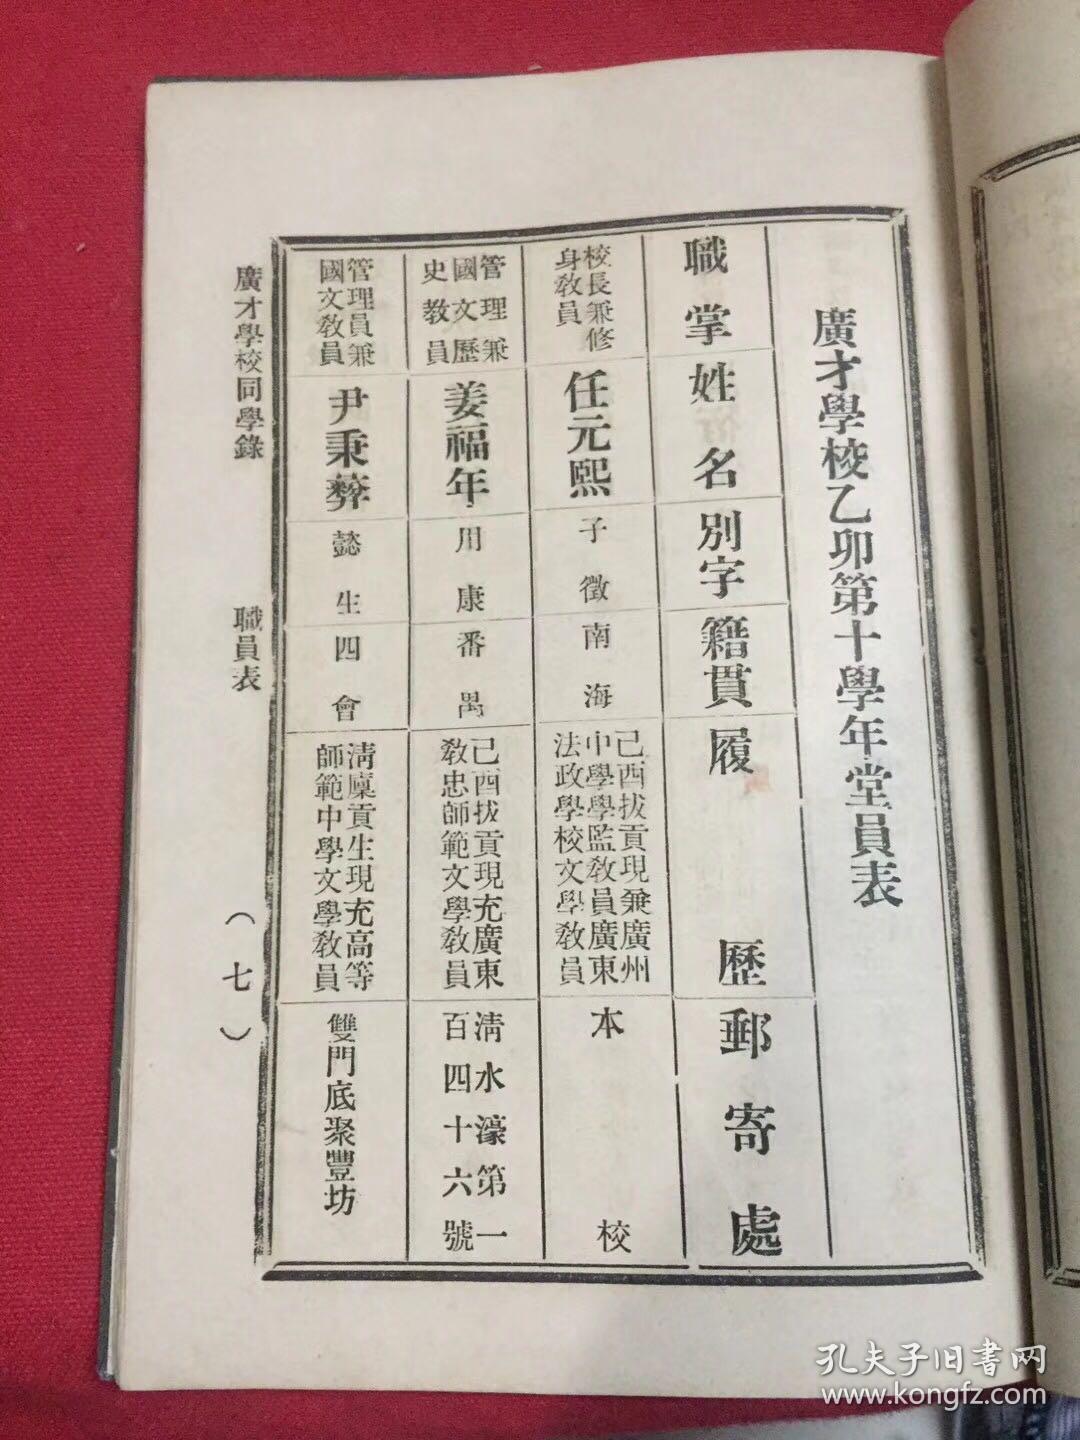 廣才學校乙卯第十學年堂員表
職掌
姓名
別字
籍貫
履歷
郵寄處
校長兼修
身敎員
任元熙
子徵
南海
己酉拔貢現兼廣州
中學學監敎員廣東
法政學校文學敎員
本校
管理兼
國文歷
史敎員
姜福年
用康
番禺
己酉拔貢現充廣東
敎忠師範文學敎員
淸水濠第一
百四十六號
管理員兼
國文敎員
尹秉彝
懿生
四會
淸廩貢生現充高等
師範中學文學敎員
雙門底聚豐坊
廣才學校同學錄
職員表
(七)
孔夫子旧書网
www.kongfz.com